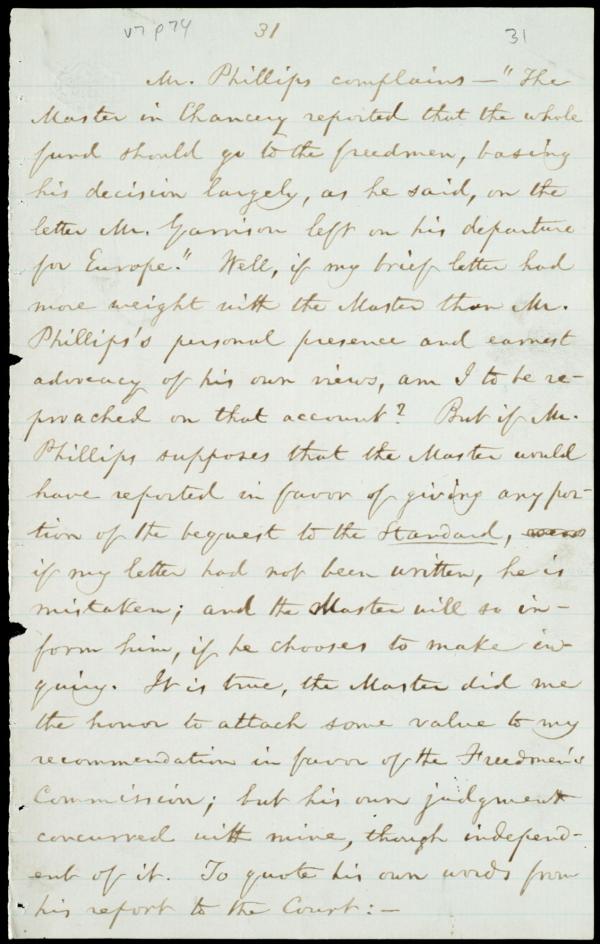 v7 p74 31 31
Mr. Phillips complains—"The
Master in Chancery reported that the whole
fund should go to the freedmen, basing
his decision largely, as he said, on the
letter Mr. Garrison left on his departure
for Europe." Well, if my brief letter had
more weight with the Master than Mr.
Phillips's personal presence and earnest
advocacy of his own views, am I to be re-
proached on that account? But if Mr.
Phillips supposes that the Master would
have reported in favor of giving any por-
tion of the bequest to the Standard,
if my letter had not been written, he is
mistaken; and the Master will so in-
form him, if he chooses to make in-
quiry. It is true, the Master did me
the honor to attach some value to my
recommendation in favor of the Freedmen's
Commission; but his own judgment
concurred with mine, though independ-
ent of it. To quote his own words from
his report to the Court:—